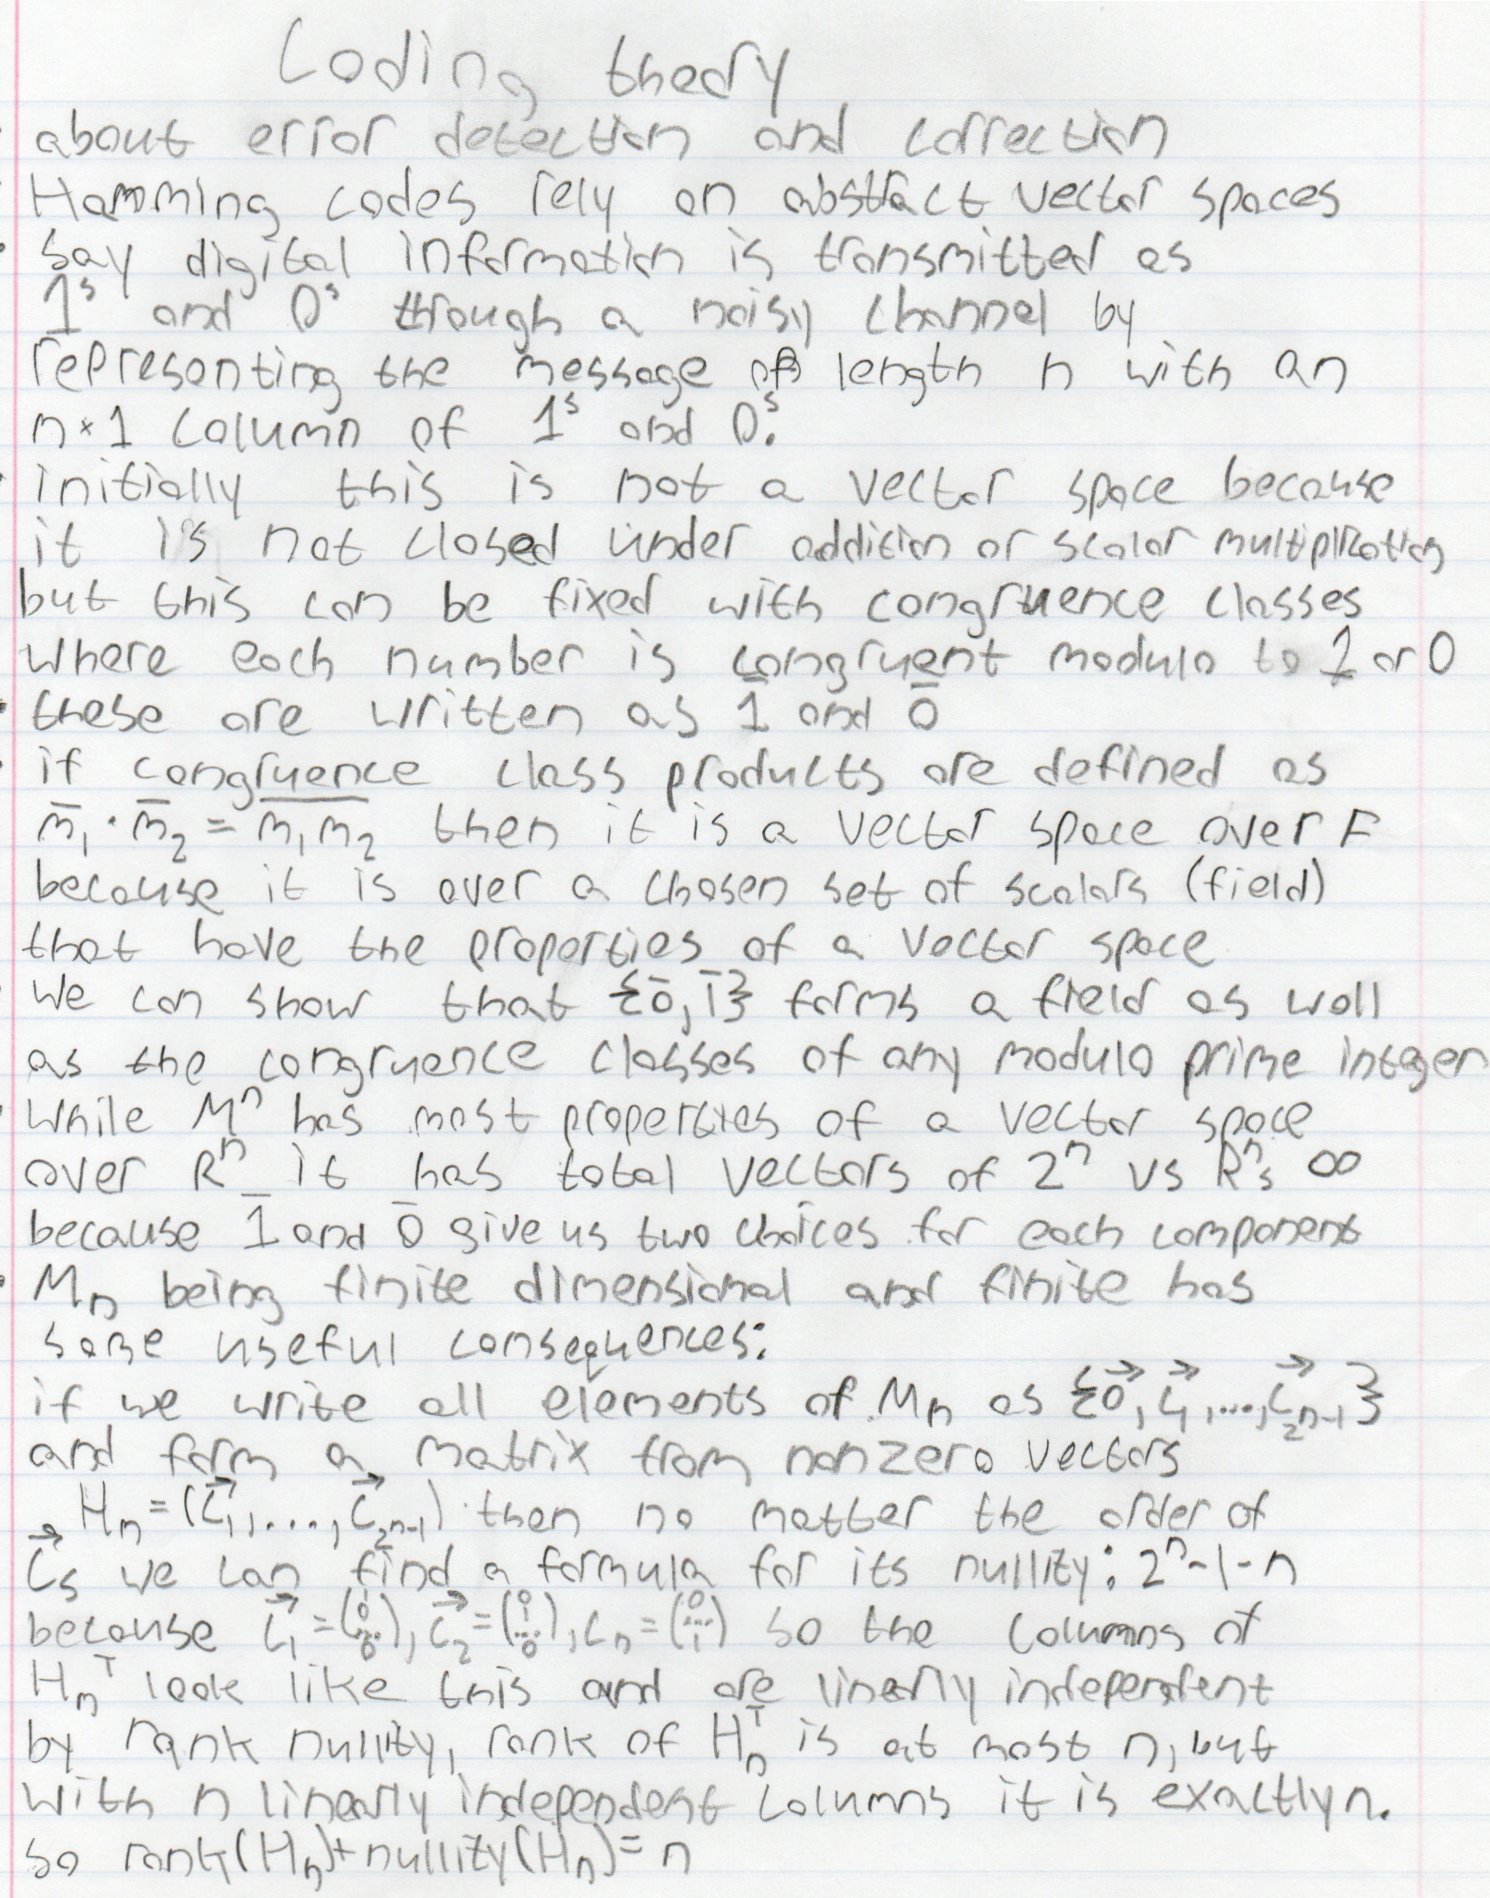 Coding theory
• about error detection and correction
• Hamming codes rely on abstract vector spaces
• Say digital information is transmitted as
1s and 0s through a noisy channel by
representing the message of length n with an
n×1 column of 1s and 0s.
• initially this is not a vector space because
it is not closed under addition or scalar multiplication
but this can be fixed with congruence classes
where each number is congruent modulo to 1 or 0
• these are written as 1̄ and 0̄
• if congruence class products are defined as
m̄₁ · m̄₂ = \overline{m₁m₂} then it is a vector space over F
because it is over a chosen set of scalars (field)
that have the properties of a vector space
• We can show that {0̄, 1̄} forms a field as well
as the congruence classes of any modulo prime integer
• While Mⁿ has most properties of a vector space
over Rⁿ it has total vectors of 2ⁿ vs Rⁿs ∞
because 1̄ and 0̄ give us two choices for each component
• Mₙ being finite dimensional and finite has
some useful consequences:
if we write all elements of Mₙ as {0⃗, c⃗₁, ..., c⃗₂ₙ₋₁}
and form a matrix from nonzero vectors
Hₙ = (c⃗₁, ..., c⃗₂ₙ₋₁) then no matter the order of
c⃗s we can find a formula for its nullity: 2ⁿ-1-n
because c⃗₁ = (1 0 ... 0), c⃗₂ = (0 1 ... 0), cₙ = (0 ... 1) so the columns of
Hₙᵀ look like this and are linearly independent
by rank nullity, rank of Hₙᵀ is at most n, but
with n linearly independent columns it is exactly n.
so rank(Hₙ)+nullity(Hₙ) = n